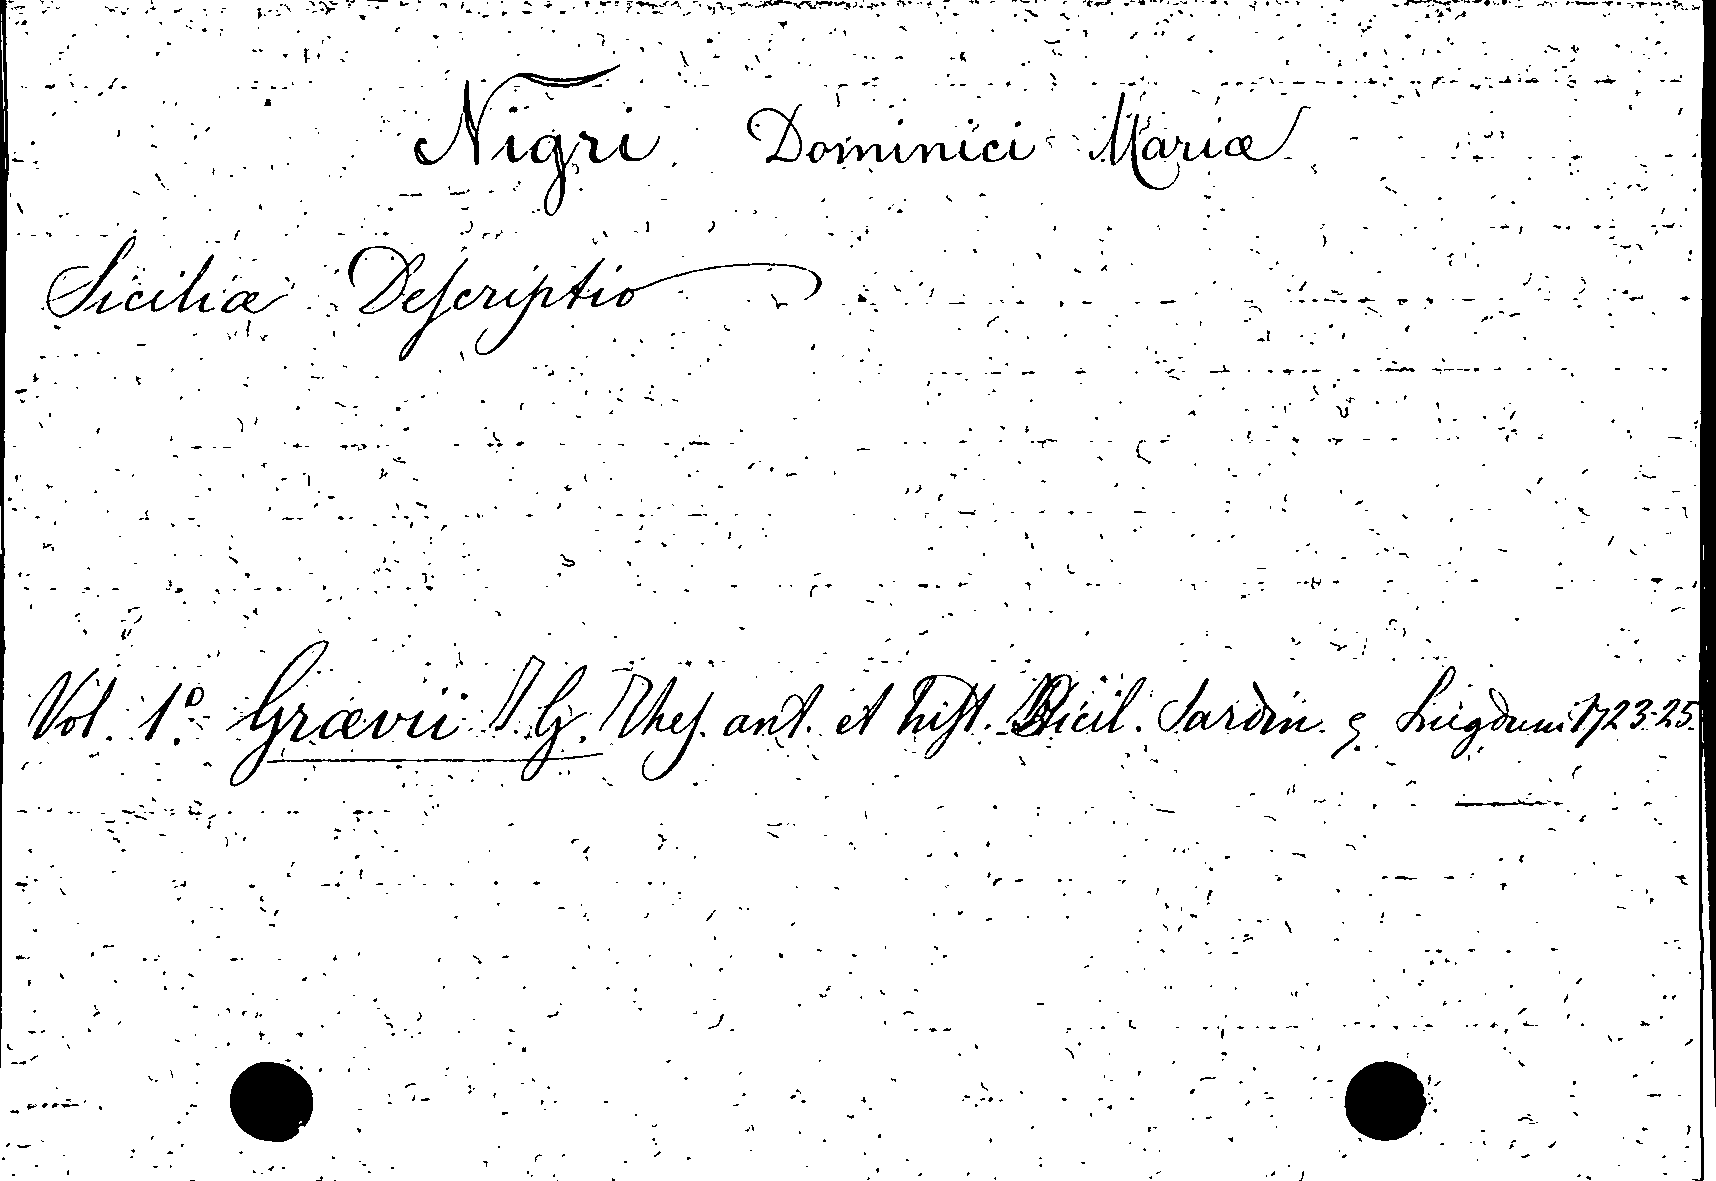 Nigri Dominici Mariæ
Siciliæ Deſcriptio
Vol. 1º Grævii I. G. Theſ. ant. et hiſt. Sicil. Sardin. & Lugduni 1723-25.